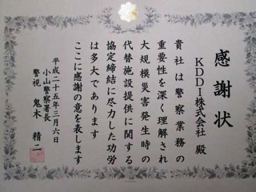 感謝状
KDDI株式会社 殿
貴社は警察業務の
重要性を深く理解され
大規模災害発生時の
代替施設提供に関する
協定締結に尽力した功労
は多大であります
ここに感謝の意を表します
平成二十五年三月六日
小山警察署長
警視 鬼木 精二